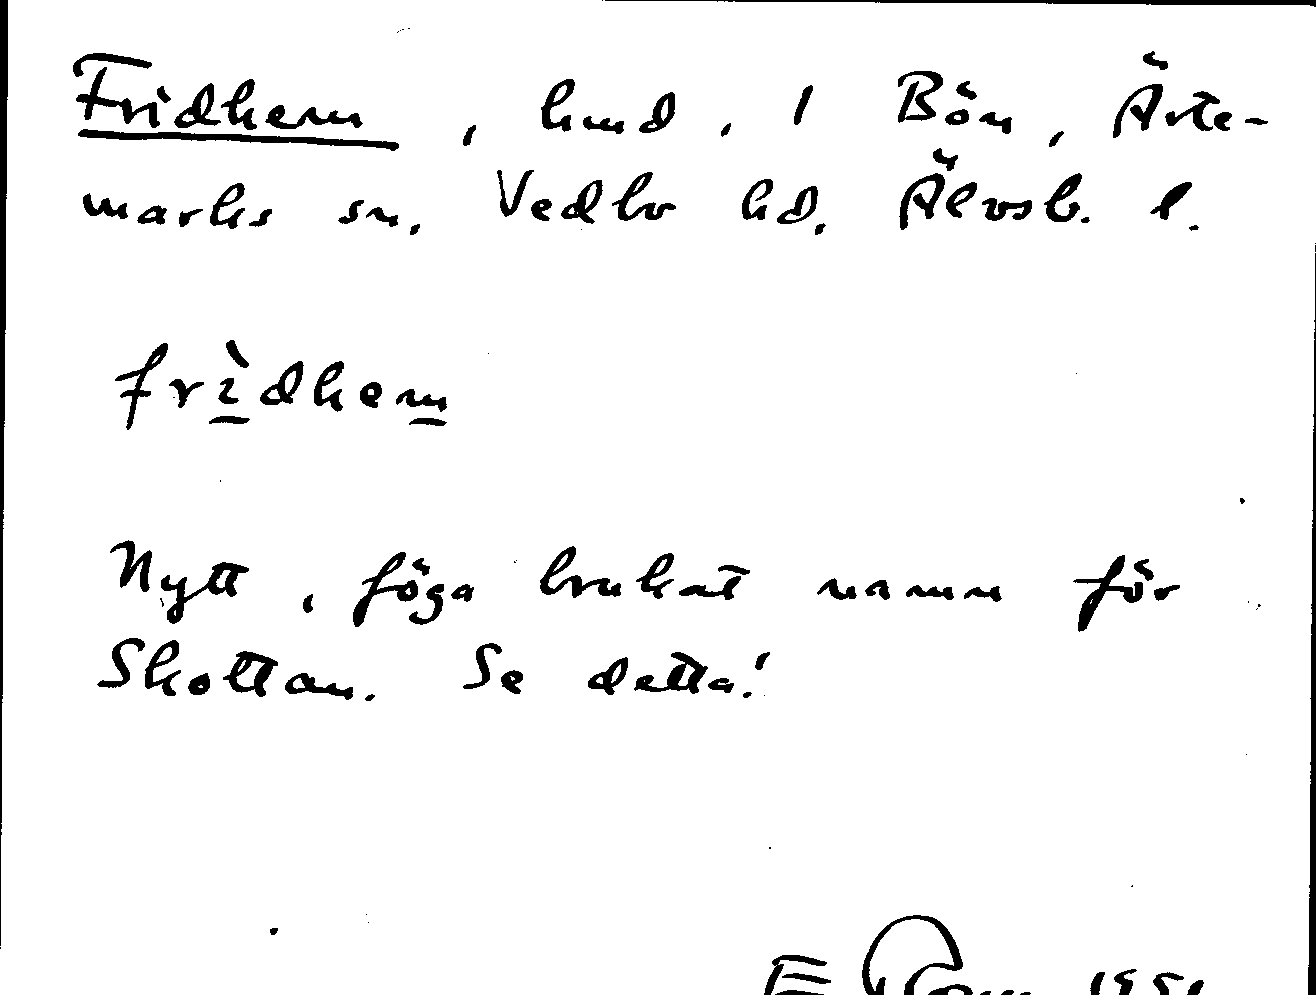 Fridhem, hmd, 1 Bön, Ärte-
marks sn. Vedbo hd. Älvsb. l.
frìdhem
Nytt, föga brukat namn för
Skottan. Se detta!